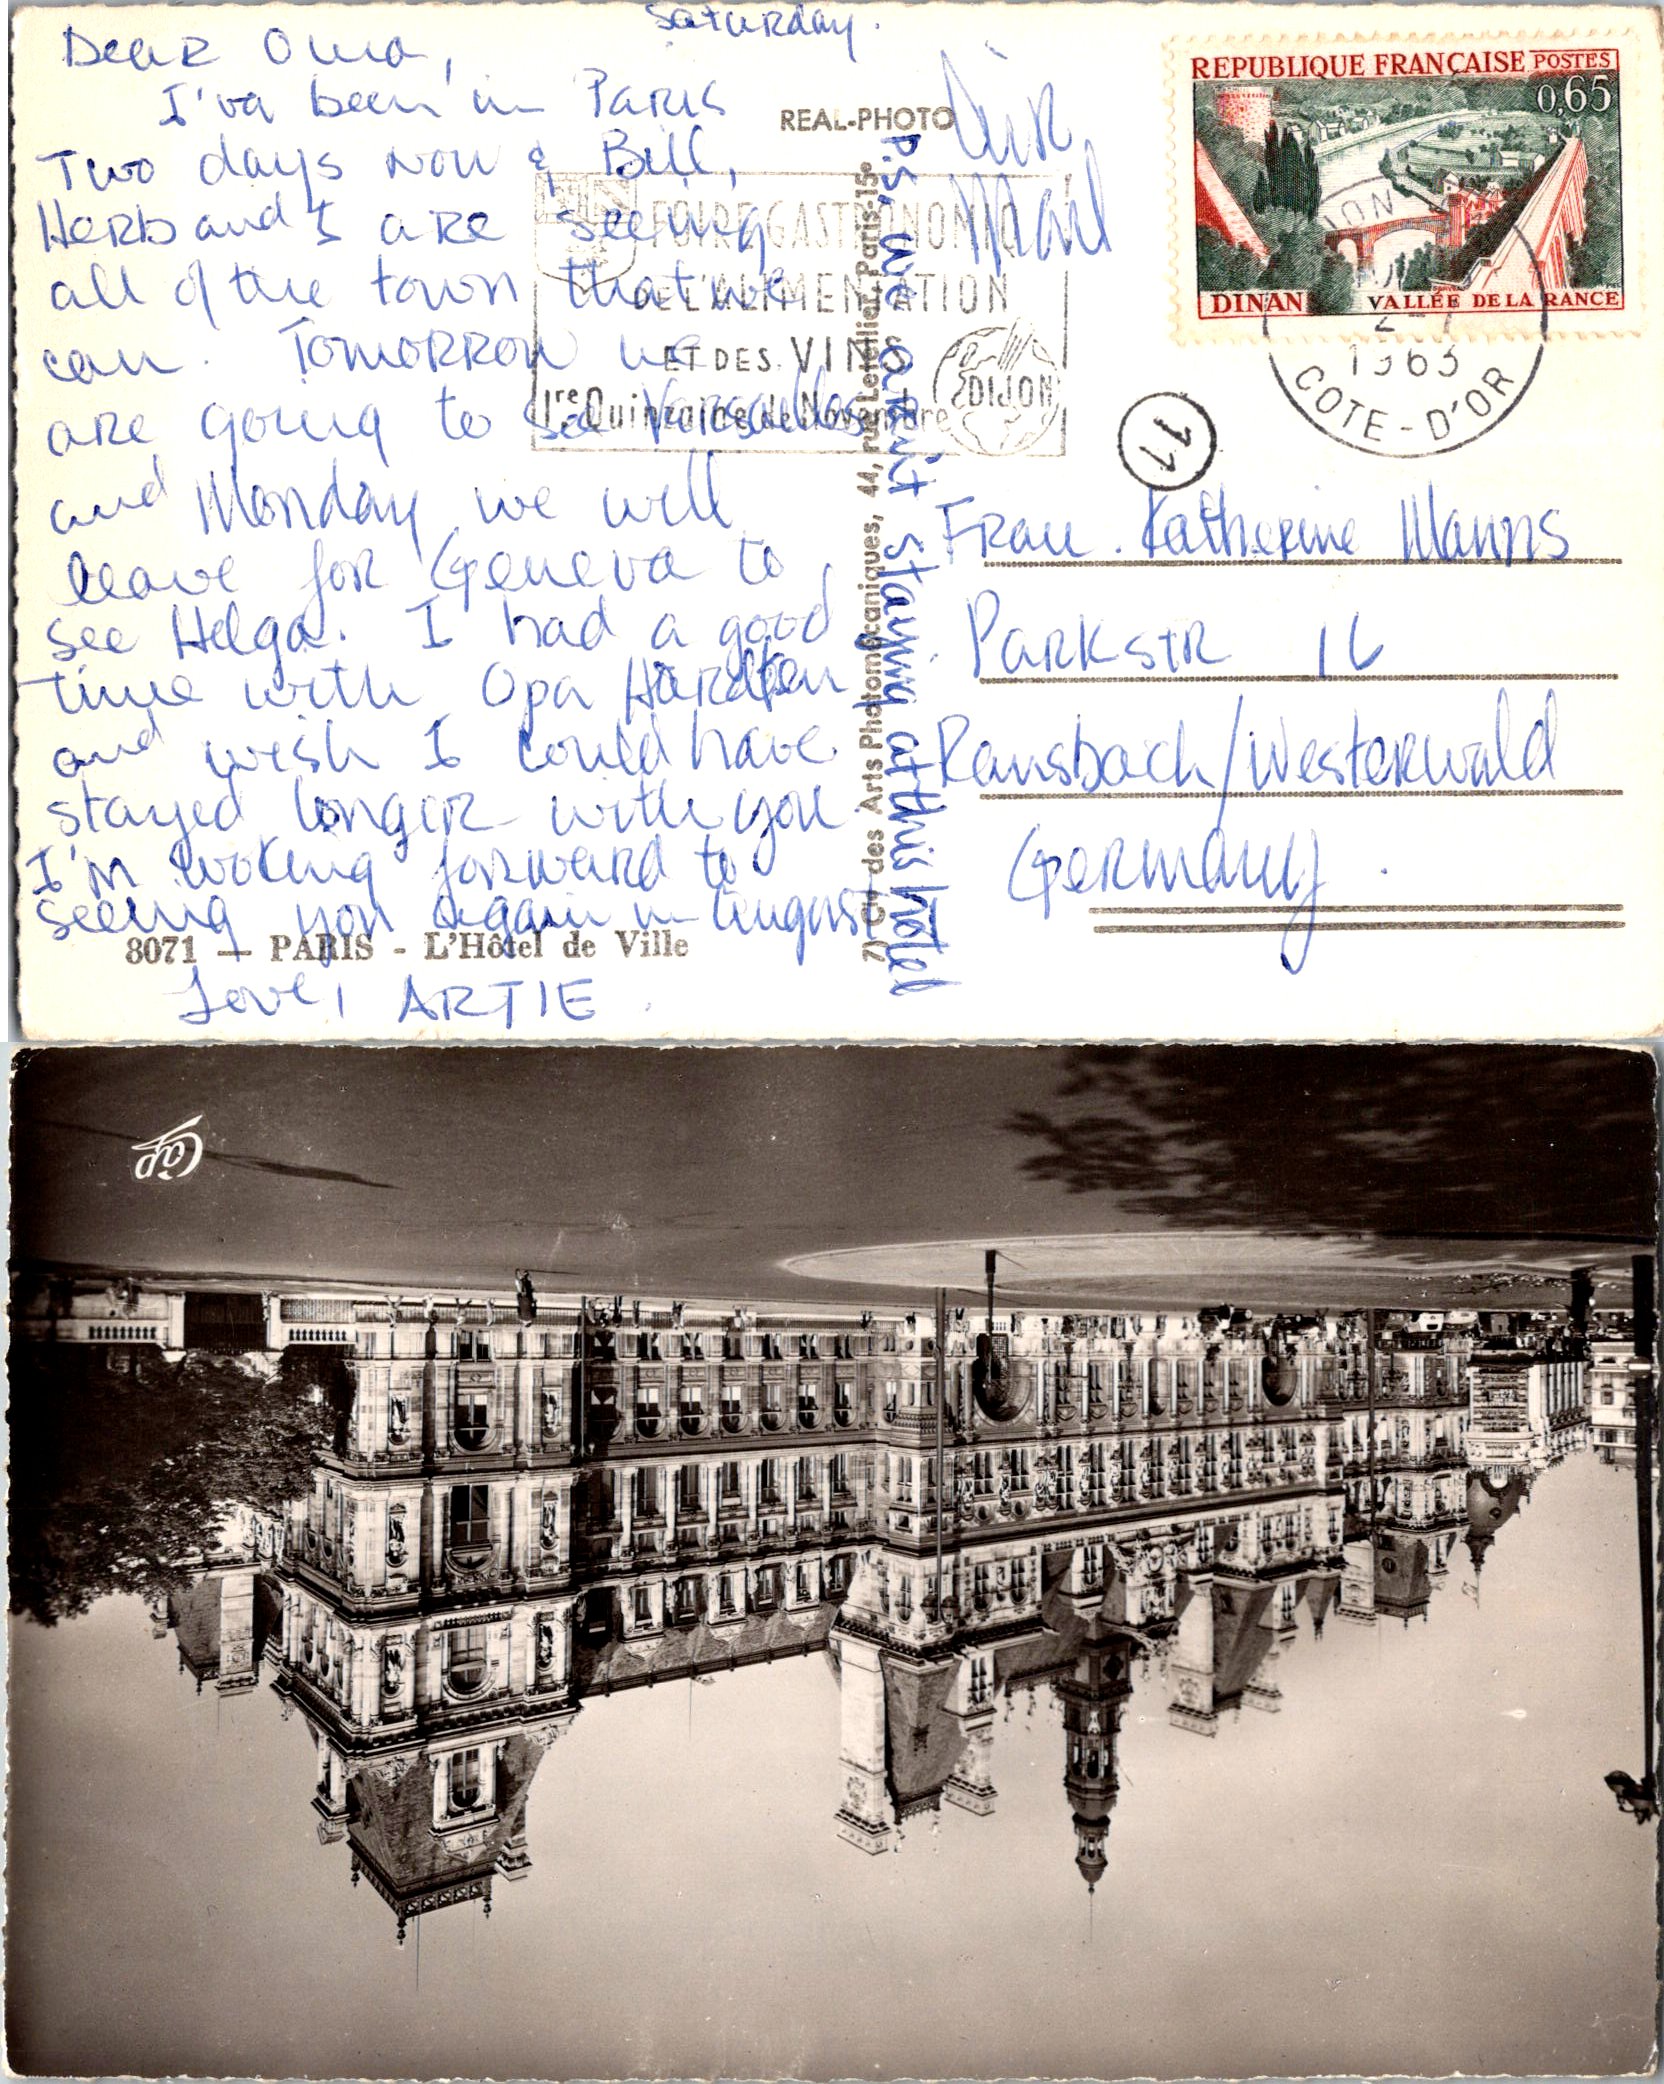 Saturday.
Dear Oma,
I've been in Paris
Two days now & Bill,
Herb and I are seeing
all of the town that we
can. Tomorrow we
are going to see Versailles
and Monday we will
leave for Geneva to
see Helga. I had a good
time with Opa
and wish I could have
stayed longer with you
I'm looking forward to
seeing you again in August
Love, ARTIE.
8071 — PARIS - L'Hôtel de Ville
REAL-PHOTO
Air
Mail
P.S. we aren't staying at this hotel
Cie des Arts Photomécaniques, 44, rue Letellier, Paris-15e
FOIRE GASTRONOMIQUE
DE L'ALIMENTATION
ET DES VINS
1re Quinzaine de Novembre
DIJON
REPUBLIQUE FRANÇAISE POSTES
0,65
DINAN VALLÉE DE LA RANCE
DIJON
2-7
1963
COTE-D'OR
11
Frau. Katherine Manns
Parkstr 16
Ransbach/Westerwald
Germany.
Cap